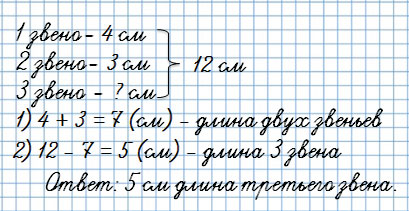 1 звено – 4 см
2 звено – 3 см 12 см
3 звено – ? см
1) 4 + 3 = 7 (см) – длина двух звеньев
2) 12 – 7 = 5 (см) – длина 3 звена
Ответ: 5 см длина третьего звена.